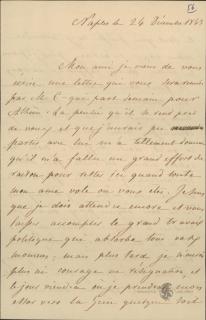 Naples le 24 Décembre 1863
Mon ami je viens de vous
écrire une lettre que vous sera remise
par Mr C- que part demain pour
Athènes - La pensée qu'il se rend près
de vous et que j'aurais pu
partir avec lui m'a tellement
qu'il m'a fallu un grand effort de
raison pour rester ici quand toute
mon âme vole où vous êtes. Je sens
que je dois attendre encore et vous
laisser accomplir le grand travail
politique qui absorbe tous vos
mais plus tard je n'aurai
plus ni courage ni résignation, et
le jour viendra où je prendrai mon
vers la Grèce quelque soit